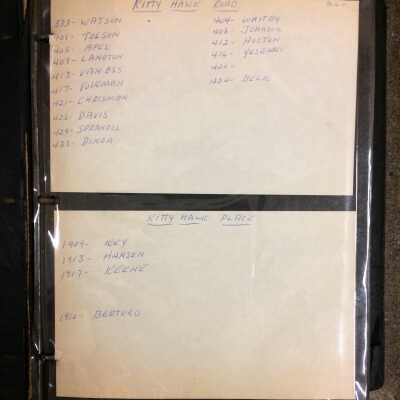 KITTY HAWK ROAD
333- WATSON
401- TOLSON
405- APEL
409- LANGTON
413-
417- VOLKMAN
421- CHRISMAN
425- DAVIS
429-
433- DIXON
404- WHITBY
408- JOHNSON
412- HOLTON
416-
420-
424- DECK
KITTY HAWK PLACE
1909- KEY
1913- HANSEN
1917- KEENE
1916- BERTORD